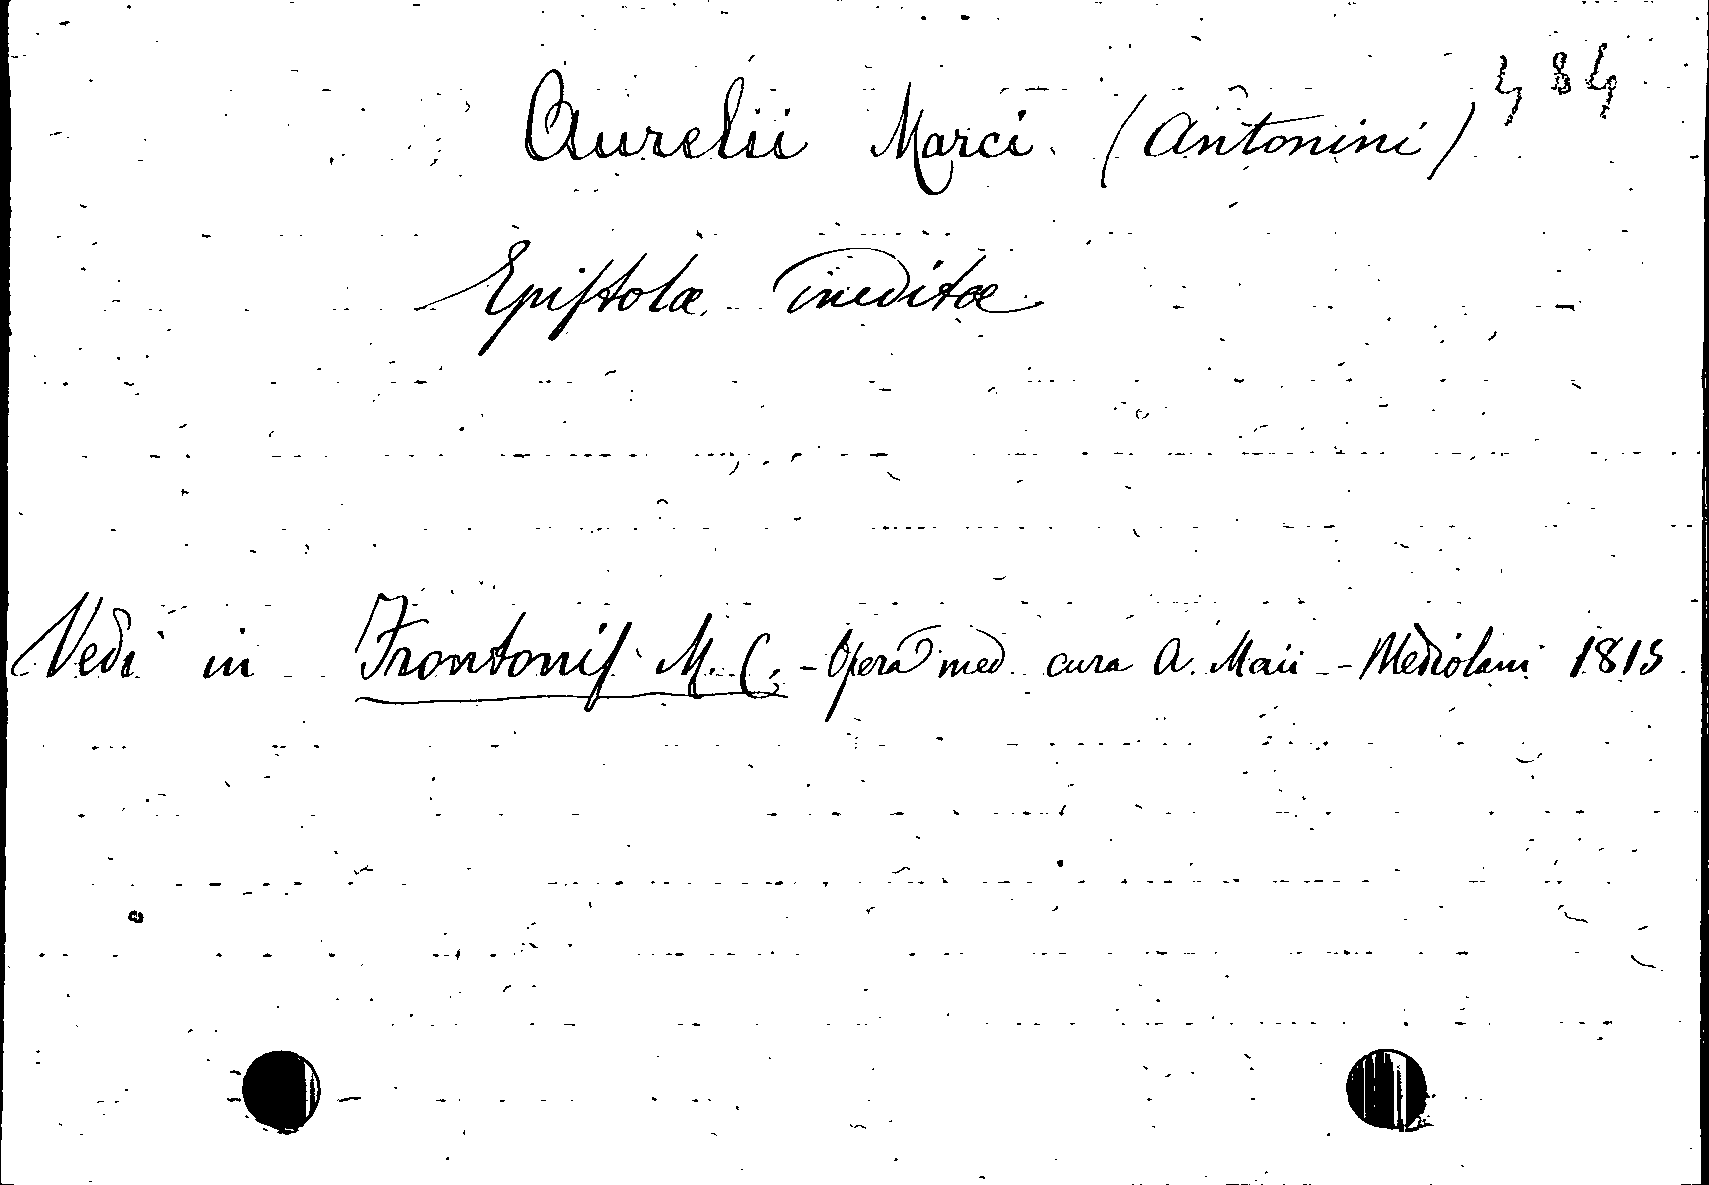 484
Aurelii Marci (Antonini)
Epistolæ ineditæ
Vedi in Frontonis M. C. - Opera ined cura A. Maii - Mediolani 1815